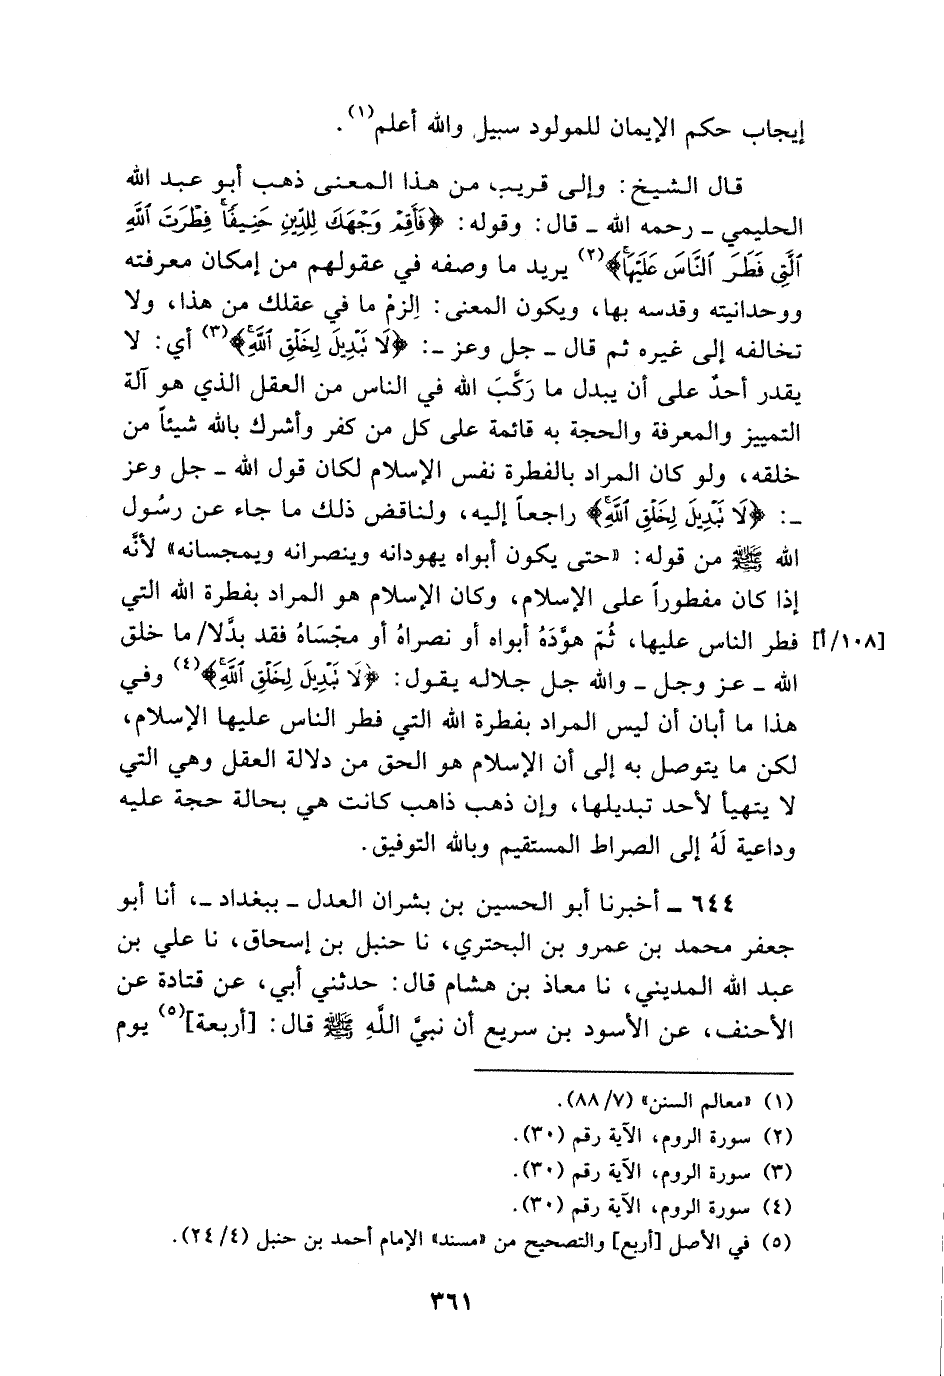 إيجاب حكم الإيمان للمولود سبيل والله أعلم(١).
قال الشيخ: وإلى قريب من هذا المعنى ذهب أبو عبد الله
الحليمي ـ رحمه الله ـ قال: وقوله: ﴿فَأَقِمْ وَجْهَكَ لِلدِّينِ حَنِيفًا ۚ فِطْرَتَ ٱللَّهِ
ٱلَّتِي فَطَرَ ٱلنَّاسَ عَلَيْهَا ۚ﴾(٢) يريد ما وصفه في عقولهم من إمكان معرفته
ووحدانيته وقدسه بها، ويكون المعنى: اِلزمْ ما في عقلك من هذا، ولا
تخالفه إلى غيره ثم قال ـ جل وعز ـ: ﴿لَا نَبْدِيلَ لِخَلْقِ ٱللَّهِ ۚ﴾(٣) أي: لا
يقدر أحدٌ على أن يبدل ما رَكَّبَ الله في الناس من العقل الذي هو آلة
التمييز والمعرفة والحجة به قائمة على كل من كفر وأشرك بالله شيئاً من
خلقه، ولو كان المراد بالفطرة نفس الإسلام لكان قول الله ـ جل وعز
ـ: ﴿لَا نَبْدِيلَ لِخَلْقِ ٱللَّهِ ۚ﴾ راجعاً إليه، ولناقض ذلك ما جاء عن رسُول
الله ﷺ من قوله: «حتى يكون أبواه يهودانه وينصرانه ويمجسانه» لأنَّه
إذا كان مفطوراً على الإسلام، وكان الإسلام هو المراد بفطرة الله التي
[١٠٨/أ] فطر الناس عليها، ثُمّ هوَّدَهُ أبواه أو نصراهُ أو مجّسَاهُ فقد بدَّلا/ ما خلق
الله ـ عز وجل ـ والله جل جلاله يقول: ﴿لَا نَبْدِيلَ لِخَلْقِ ٱللَّهِ ۚ﴾(٤) وفي
هذا ما أبان أن ليس المراد بفطرة الله التي فطر الناس عليها الإسلام،
لكن ما يتوصل به إلى أن الإسلام هو الحق من دلالة العقل وهي التي
لا يتهيأ لأحد تبديلها، وإن ذهب ذاهب كانت هي بحالة حجة عليه
وداعية لَهُ إلى الصراط المستقيم وبالله التوفيق.
٦٤٤ ـ أخبرنا أبو الحسين بن بشران العدل ـ ببغداد ـ، أنا أبو
جعفر محمد بن عمرو بن البحتري، نا حنبل بن إسحاق، نا علي بن
عبد الله المديني، نا معاذ بن هشام قال: حدثني أبي، عن قتادة عن
الأحنف، عن الأسود بن سريع أن نبيَّ اللَّهِ ﷺ قال: [أربعة](٥) يوم
(١) «معالم السنن» (٧/ ٨٨).
(٢) سورة الروم، الآية رقم (٣٠).
(٣) سورة الروم، الآية رقم (٣٠).
(٤) سورة الروم، الآية رقم (٣٠).
(٥) في الأصل [أربع] والتصحيح من «مسند» الإمام أحمد بن حنبل (٤/ ٢٤).
٣٦١